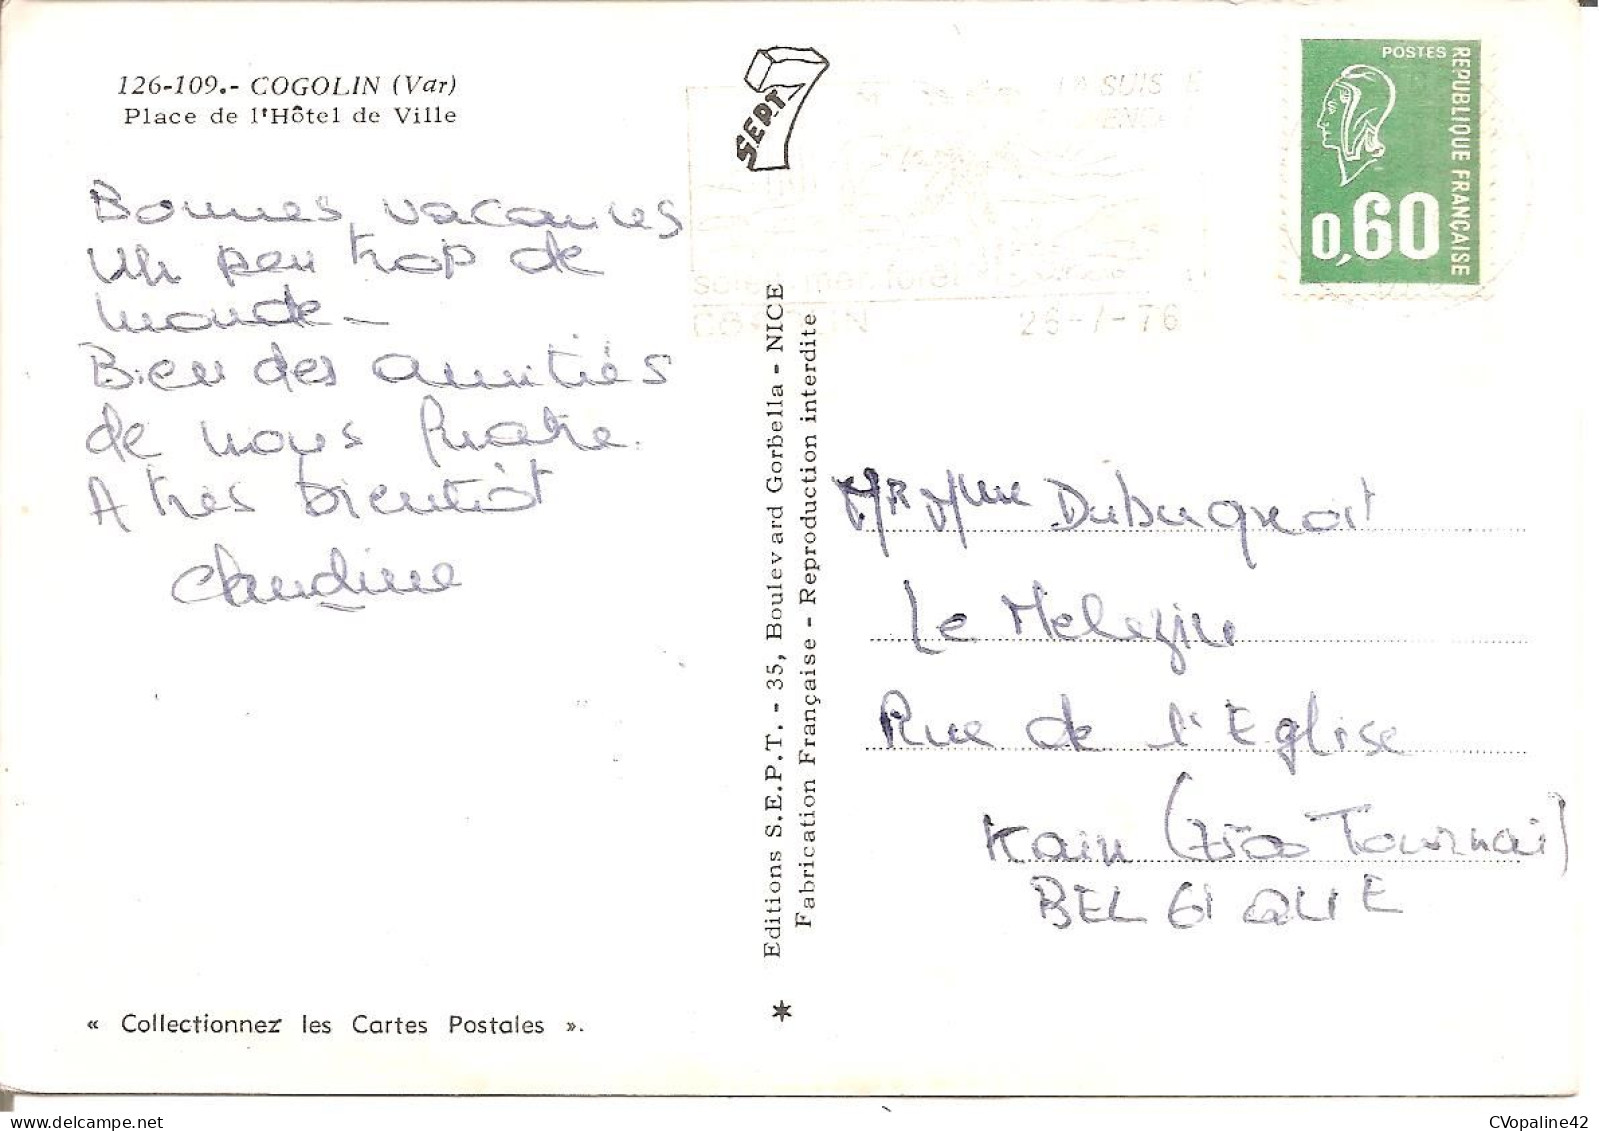 126-109.- COGOLIN (Var)
Place de l'Hôtel de Ville
Bonnes vacances
un peu trop de
monde_
Bien des amitiés
de nous quatre.
A très bientôt
Claudine
« Collectionnez les Cartes Postales ».
S.E.P.T.
LA SUIS E
soleil mer forêt
COGOLIN 26-7-76
POSTES
REPUBLIQUE FRANÇAISE
0,60
Editions S.E.P.T. - 35, Boulevard Gorbella - NICE
Fabrication Française - Reproduction interdite
Mr Mme Dubugnoit
Le Melezin
Rue de l'Eglise
Kain (7500 Tournai)
BELGIQUE
CVopaline42